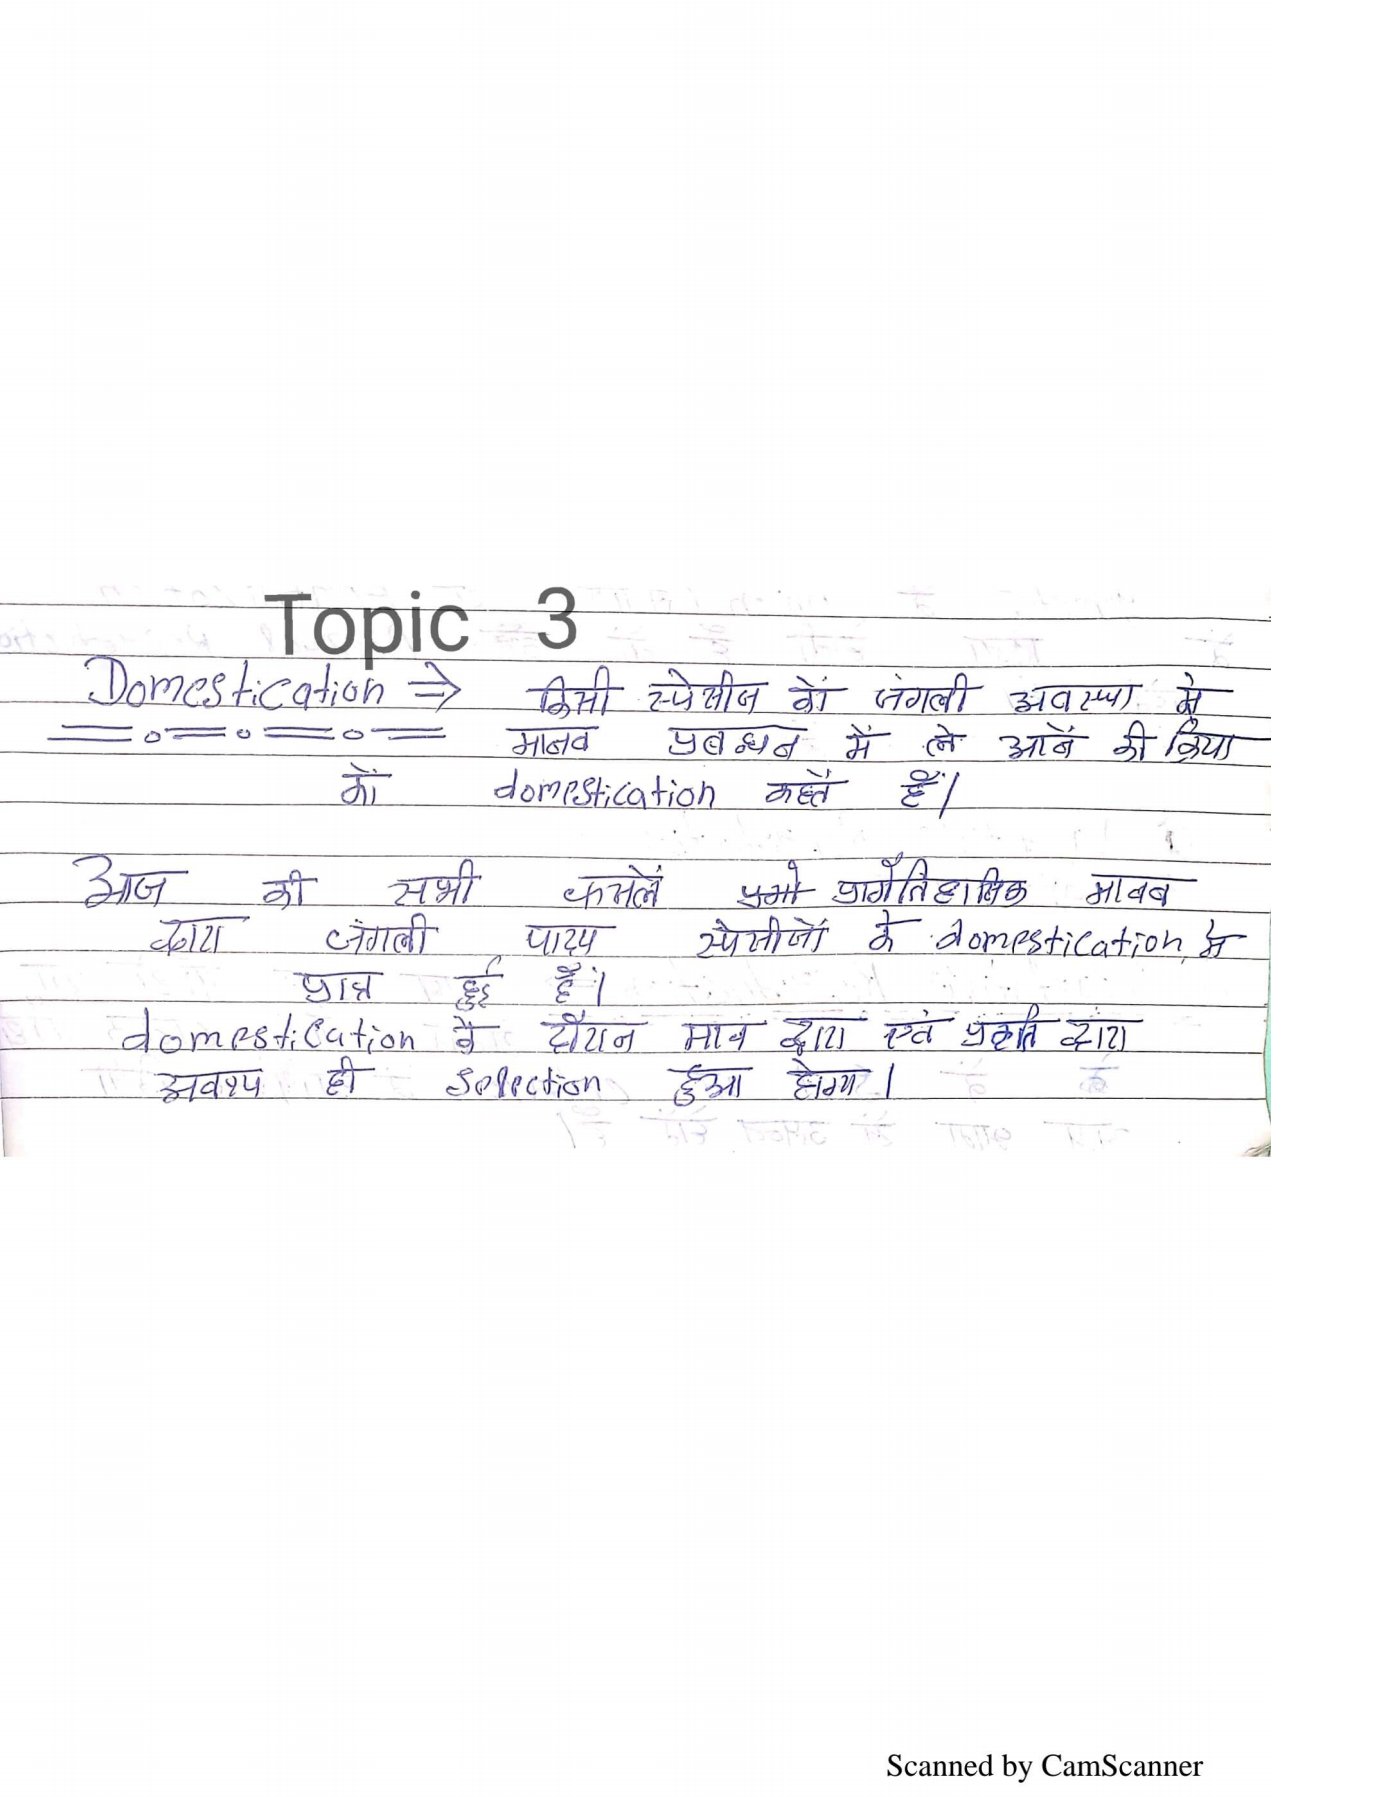 Topic 3
Domestication ⇒ किसी स्पेसीज कों जंगली अवस्था से
मानव प्रबन्धन में ले आनें की क्रिया
कों domestication कहतें हैं।
आज की सभी फसलें प्रागैतिहासिक मानव
द्वारा जंगली पादप स्पेसीजों के domestication से
प्राप्त हुई हैं।
domestication के दौरान माव द्वारा एवं प्रकृति द्वारा
अवश्य ही selection हुआ होगा।
Scanned by CamScanner